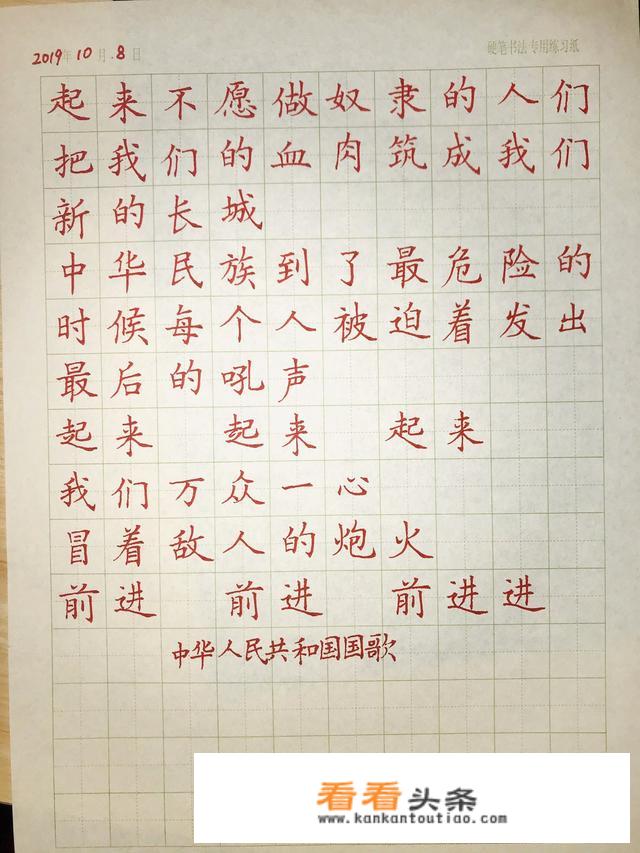 2019年10月.8日
硬笔书法专用练习纸
起来不愿做奴隶的人们
把我们的血肉筑成我们
新的长城
中华民族到了最危险的
时候每个人被迫着发出
最后的吼声
起来 起来 起来
我们万众一心
冒着敌人的炮火
前进 前进 前进进
中华人民共和国国歌
看看头条
www.kankantoutiao.com